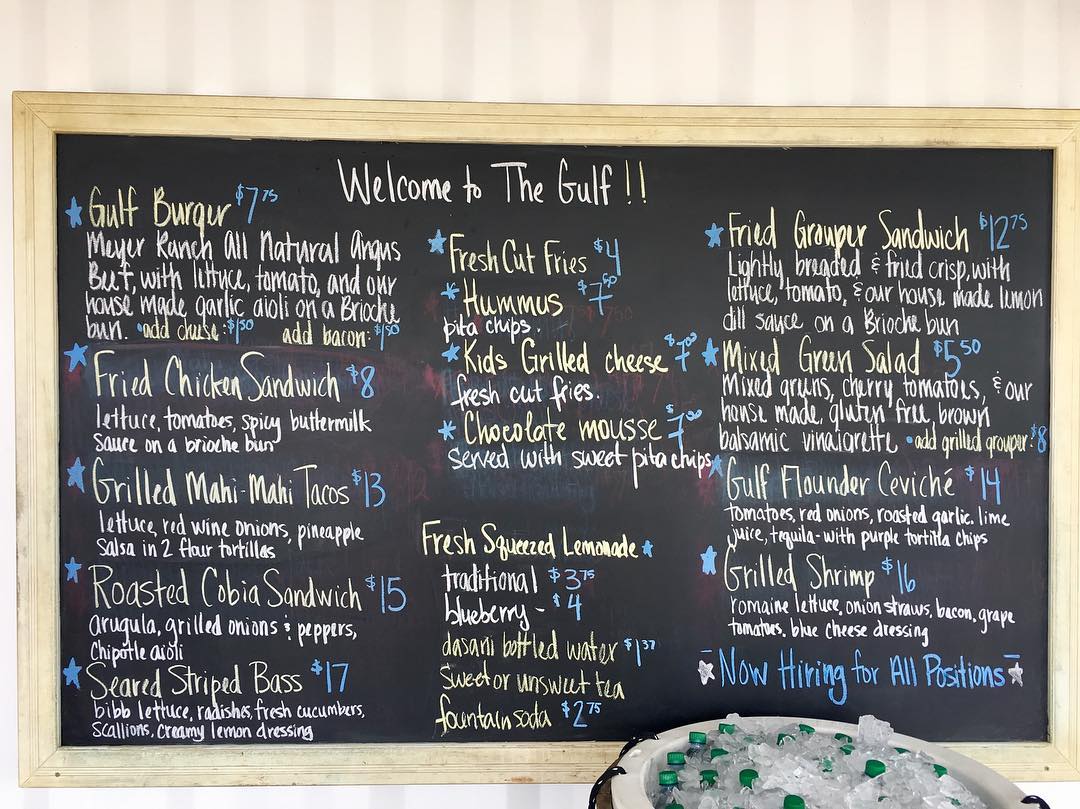 Welcome to The Gulf !!
Gulf Burger $7.75
Meyer Ranch All Natural Angus
Beef, with lettuce, tomato, and our
house made garlic aioli on a Brioche
bun. • add cheese: $1.50 add bacon: $1.50
Fried Chicken Sandwich $8
lettuce, tomatoes, spicy buttermilk
sauce on a brioche bun
Grilled Mahi-Mahi Tacos $13
lettuce, red wine onions, pineapple
Salsa in 2 flour tortillas
Roasted Cobia Sandwich $15
arugula, grilled onions & peppers,
Chipotle aioli
Seared Striped Bass $17
bibb lettuce, radishes, fresh cucumbers,
Scallions, creamy lemon dressing
Fresh Cut Fries $4
Hummus $7
pita chips.
Kids Grilled cheese $7
fresh cut fries.
Chocolate mousse $7
served with sweet pita chips
Fresh Squeezed Lemonade
traditional $3.75
blueberry - $4
dasani bottled water $1.37
Sweet or unsweet tea
fountain soda $2.75
Fried Grouper Sandwich $12.75
Lightly breaded & fried crisp, with
lettuce, tomato, & our house made lemon
dill sauce on a Brioche bun
Mixed Green Salad $5.50
Mixed greens, cherry tomatoes, & our
house made, gluten free brown
balsamic vinaigrette • add grilled grouper: $8
Gulf Flounder Ceviché $14
tomatoes, red onions, roasted garlic, lime
juice, tequila - with purple tortilla chips
Grilled Shrimp $16
romaine lettuce, onion straws, bacon, grape
tomatoes, blue cheese dressing
Now Hiring for All Positions